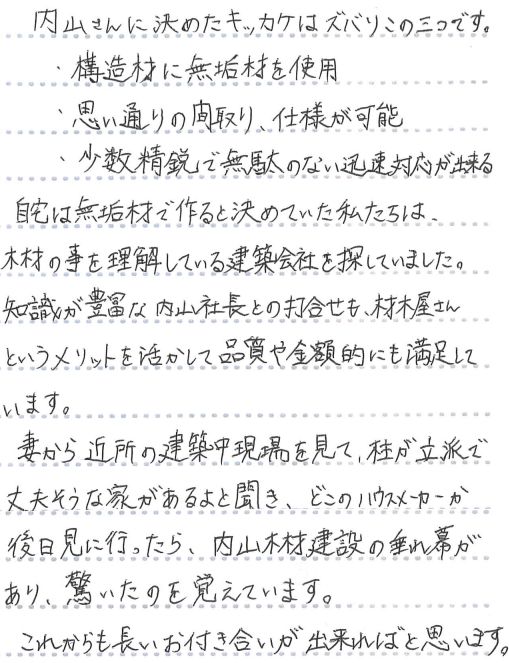 内山さんに決めたキッカケはズバリこの三つです。
・構造材に無垢材を使用
・思い通りの間取り、仕様が可能
・少数精鋭で無駄のない迅速対応が出来る
自宅は無垢材で作ると決めていた私たちは、
木材の事を理解している建築会社を探していました。
知識が豊富な内山社長との打合せも、材木屋さん
というメリットを活かして品質や金額的にも満足して
います。
妻から近所の建築中現場を見て、柱が立派で
丈夫そうな家があるよと聞き、どこのハウスメーカーか
後日見に行ったら、内山木材建設の垂れ幕が
あり、驚いたのを覚えています。
これからも長いお付き合いが出来ればと思います。